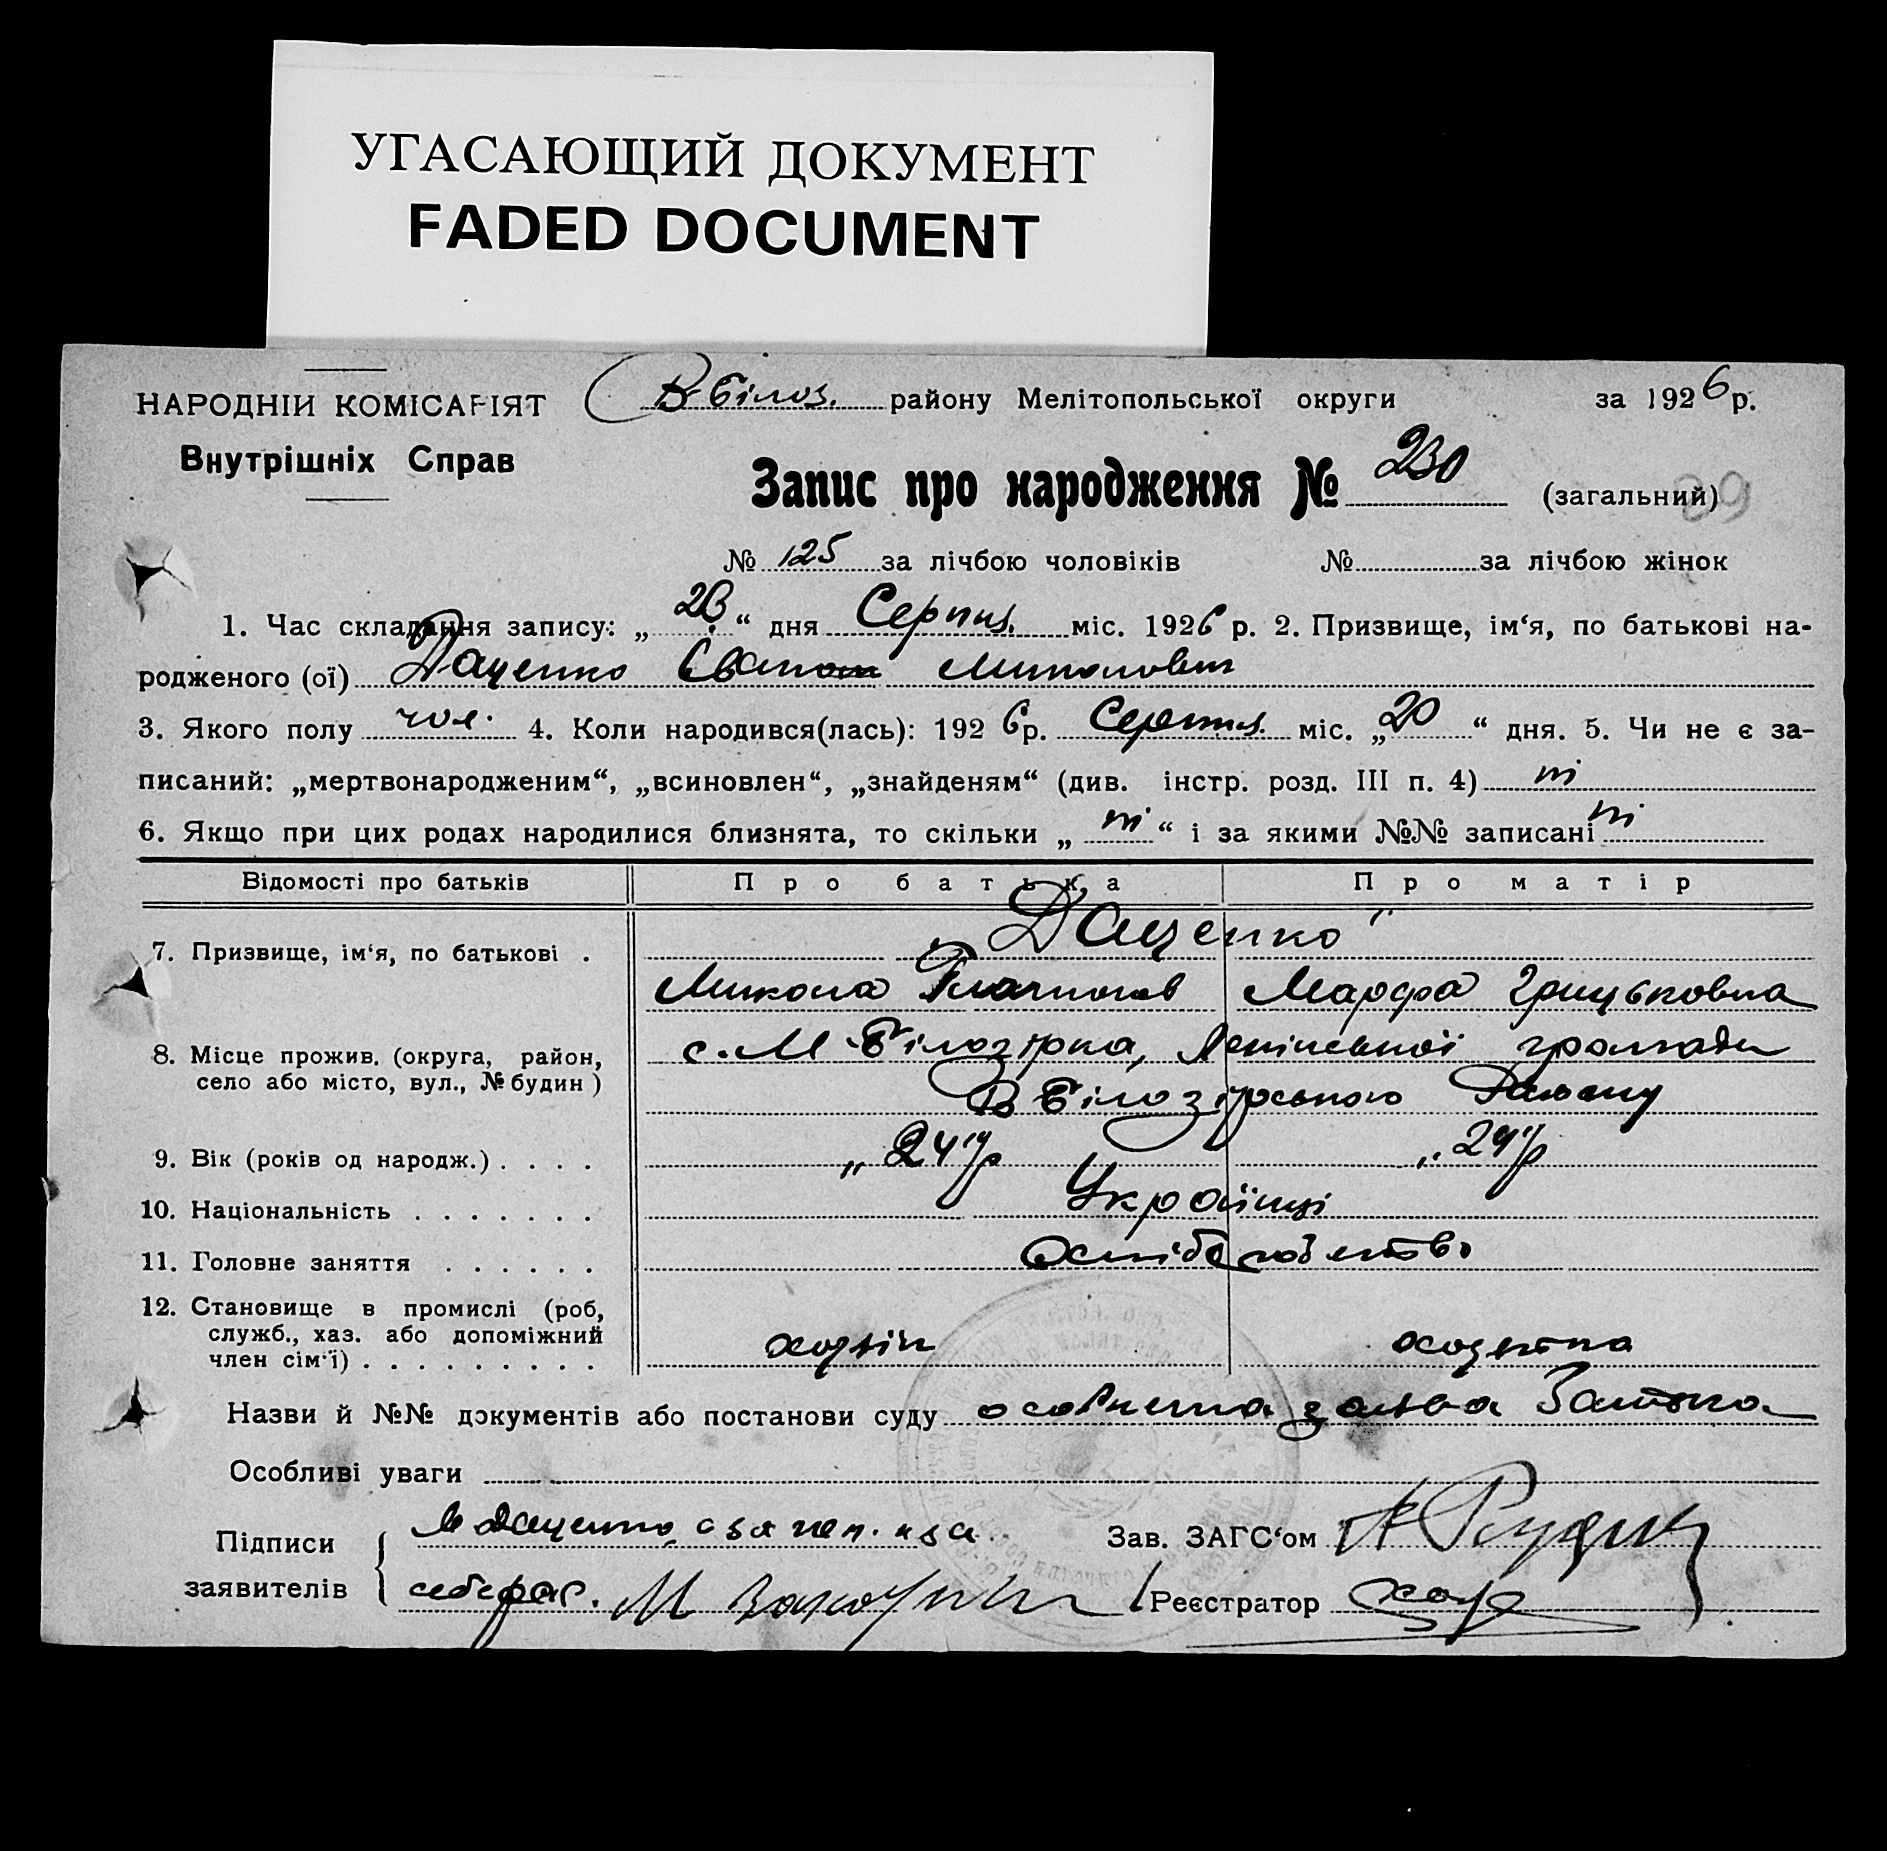 УГАСАЮЩИЙ ДОКУМЕНТ
FADED DOCUMENT
НАРОДНІЙ КОМІСАРІЯТ
Внутрішніх Справ
В-Білоз. району Мелітопольської округи за 1926 р.
Запис про народження № 230 (загальний)
89
№ 125 за лічбою чоловіків № за лічбою жінок
1. Час складання запису: „23“ дня Серпня міс. 1926 р. 2. Призвище, ім‘я, по батькові на-
родженого (ої) Даценко Миколович
3. Якого полу чол. 4. Коли народився(лась): 1926 р. Серпня міс. „20“ дня. 5. Чи не є за-
писаний: „мертвонародженим“, „всиновлен“, „знайденям“ (див. інстр. розд. III п. 4) ні
6. Якщо при цих родах народилися близнята, то скільки „ ні “ і за якими №№ записані ні
Відомості про батьків Про батька Про матір
7. Призвище, ім‘я, по батькові . Даценко
Микола Марфа Грицьковна
8. Місце прожив. (округа, район, с. М-Білозірка, Ленінської громади
село або місто, вул., № будин) В Білозірського Району
9. Вік (років од народж.) . . . . „24“ р „24“ р
10. Національність . . . . . . . Українці
11. Головне заняття . . . . . .
12. Становище в промислі (роб,
служб., хаз. або допоміжний хазяін
член сім‘ї) . . . . . . . . .
Назви й №№ документів або постанови суду заява
Особливі уваги
Підписи Даценко Зав. ЗАГС‘ом
заявителів М Реєстратор